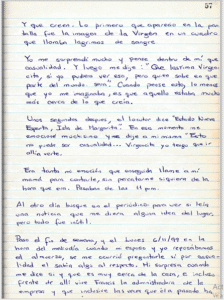 57
Y que creen. Lo primero que apareció en la pan
talla fue la imagen de la Virgen en un cuadro
que lloraba lágrimas de sangre.
Yo me sorprendí mucho y pensé dentro de mí que
casualidad. Y luego me dije. Que lastima Virgen
cita, si yo pudiera ver eso, pero quien sabe en que
parte del mundo será. Cuando pensé esto, lo menos
que yo me imaginaba, es que aquello estaba mucho
más cerca de lo que creía.
Unos segundos después, el locutor dice "Estado Nueva
Esparta, Isla de Margarita". En ese momento me
emocioné muchísimo y me dije. Esto
no puede ser casualidad... Virgencita yo tengo que ir
allá verte.
Era tanta mi emoción que enseguida llame a mi
mamá para contarle, sin percatarme siquiera de la
hora que era. Pasaban de las 11 pm.
Al otro día busqué en el periódico para ver si leía
una noticia que me diera alguna idea del lugar,
pero todo fue inútil.
Pasó el fin de semana y el lunes 6/12/99 en la
hora del mediodía cuando mi esposo y yo reposábamos
el almuerzo, se me ocurrió preguntarle si por casua
lidad él sabía algo al respecto. Mi sorpresa cuando
me dice si y que es muy cerca de la casa, en
la cual vive Tamara la administradora de la
empresa y que inclusive las veces que ella pasado ha